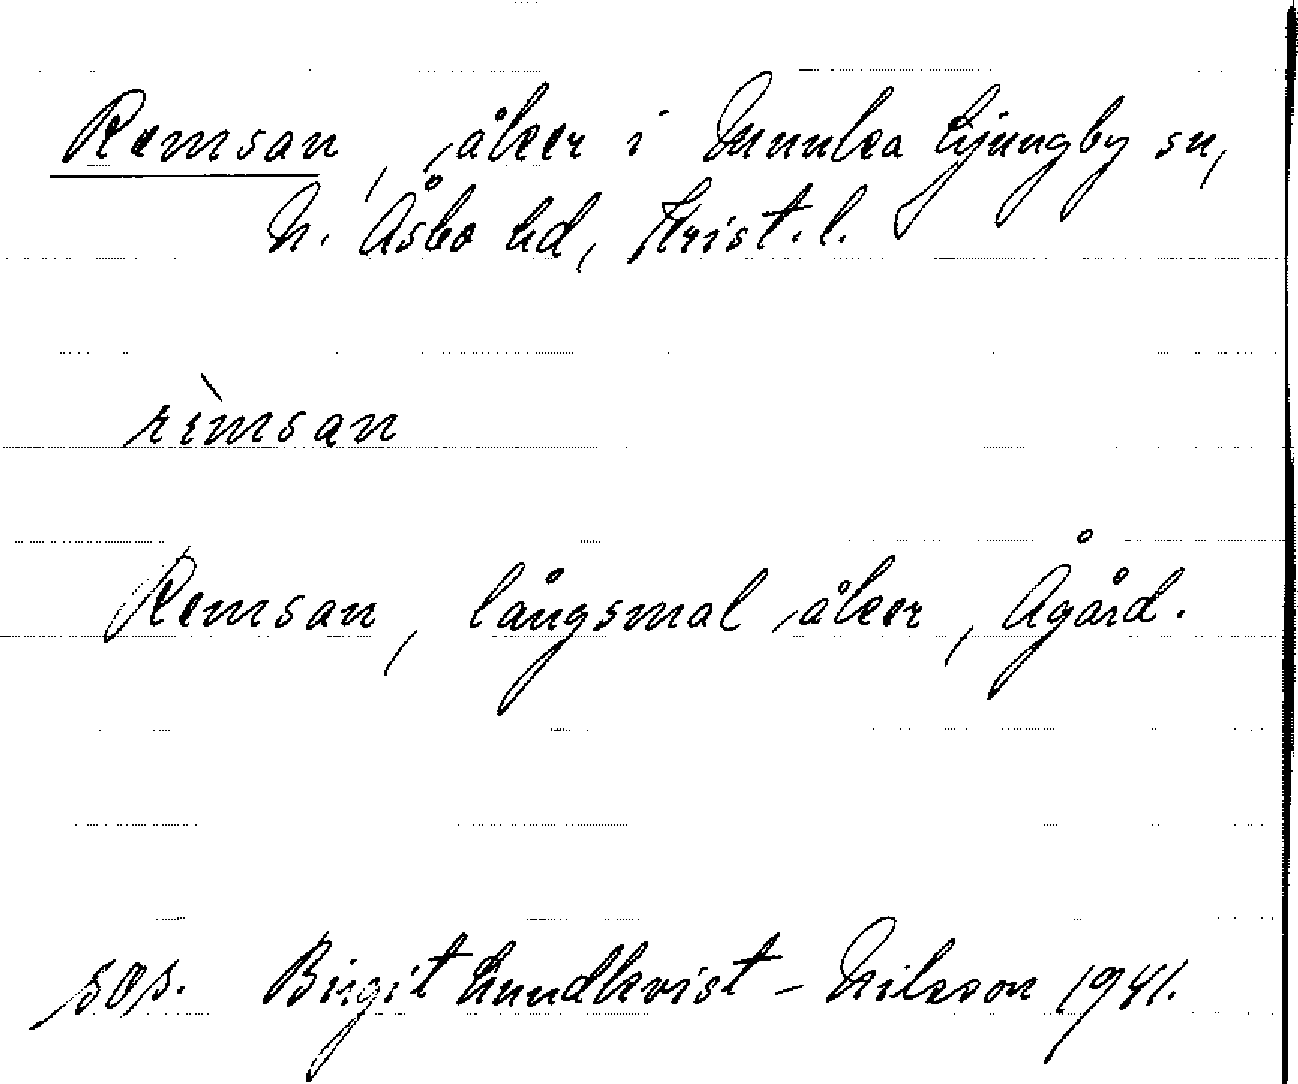 Remsan, åker i Munka Ljungby sn,
N. Åsbo hd, Krist. l.
rèmsan
Remsan, långsmal åker, Ågård.
Birgit Lundkvist - Nilsson 1941.